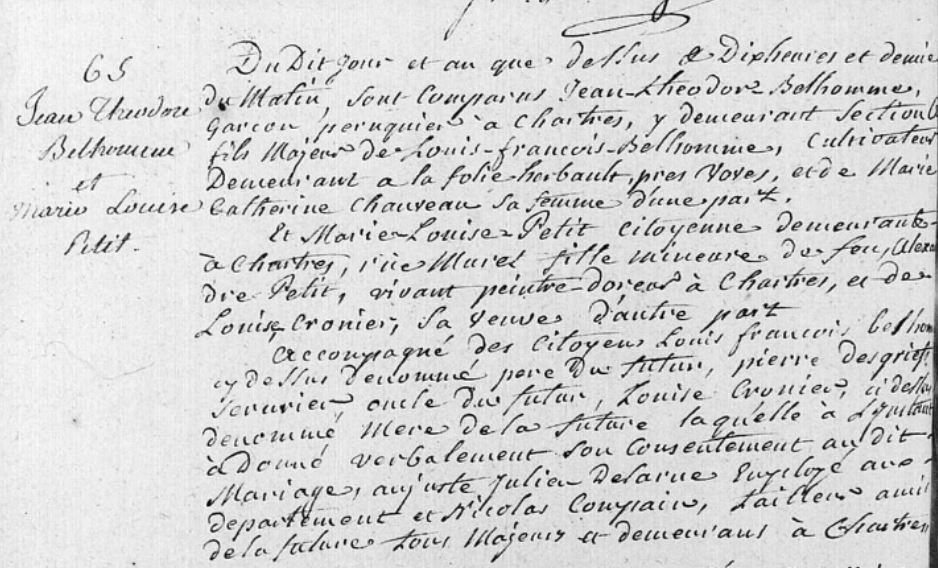 65
Jean Theodore
Belhomme
et
Marie Louise
Petit.
Du Dit jour et an que dessus a Dix heures et demie
du Matin, sont Comparus Jean-theodore Belhomme,
Garcon peruquier à Chartres, y demeurant Section
fils Majeur de Louis-francois-Belhomme, Cultivateur
Demeurant a la folie herbault, pres Voves, et de Marie
Catherine Chauveau Sa femme d'une part.
Et Marie-Louise-Petit Citoyenne demeurante
à Chartres, rüe Muret fille mineure de feu, Alexan
dre Petit, vivant peintre-doreur à Chartres, et de
Louise Cronier, Sa Veuve d'autre part
Accompagné des Citoyens Louis francois belhom
cy dessus denommé pere du futur, pierre
Serurier, oncle du futur, Louise Cronier, ci dessus
denommé, Mere de la future laquelle à L'instant
à Donné verbalement Son Consentement au dit
Mariage, auguste Julien Delarue Employé au
departement et Nicolas Compain, tailleur amis
de la future tous Majeurs et demeurans à Chartres